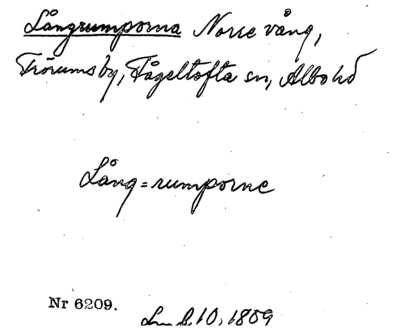 Långrumporna Norre vång,
Trörums by, Fågeltofta sn, Albo hd
Lång=rumporne
Nr 6209.
10, 1809